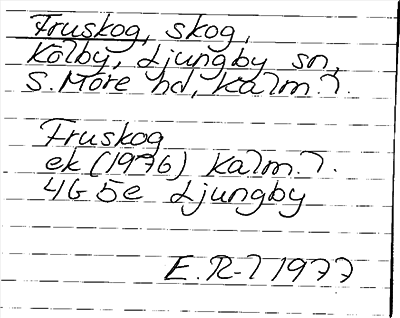 Fruskog, skog,
Kölby, Ljungby sn,
S. Möre hd, Kalm. l.
Fruskog
ek (1976) Kalm. l.
4G 5e Ljungby
E. R-l 1977